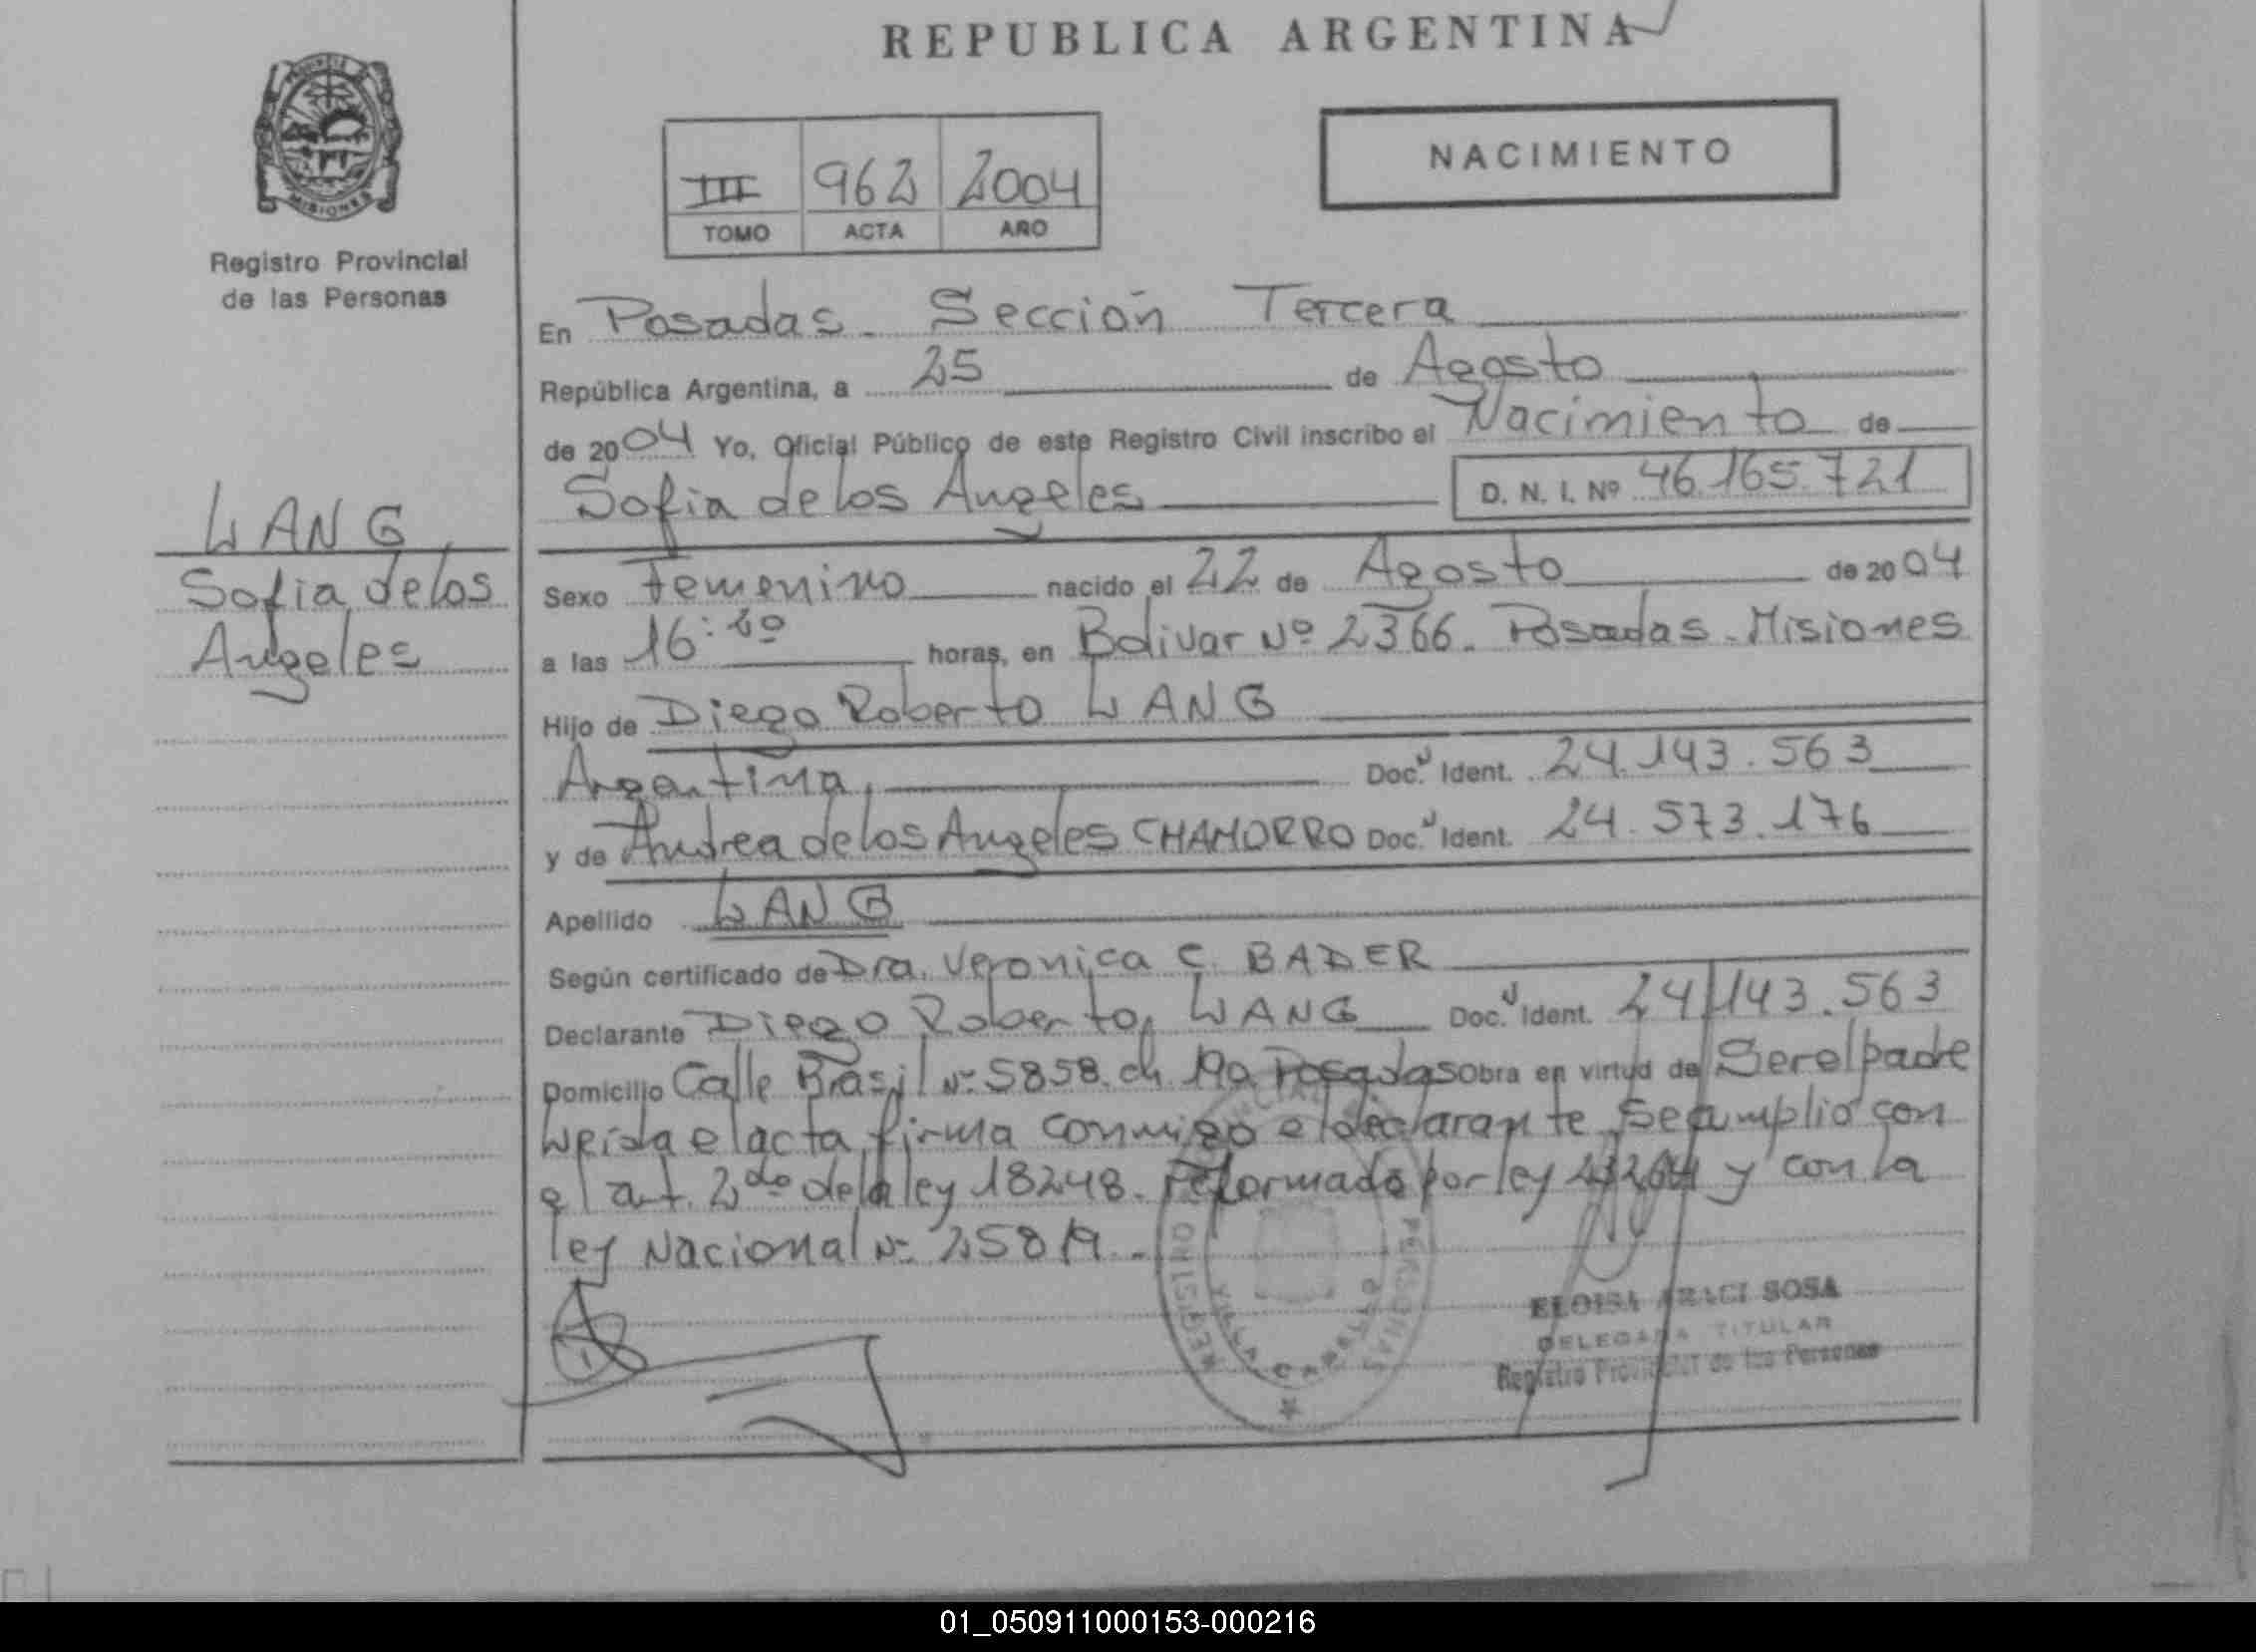 REPUBLICA ARGENTINA
MISIONES
Registro Provincial
de las Personas
NACIMIENTO
III 962 2004
TOMO ACTA AÑO
En Posadas. Sección Tercera
República Argentina, a 25 de Agosto
de 2004 Yo, Oficial Público de este Registro Civil inscribo el Nacimiento de
Sofia de los Angeles D. N. I. Nº 46.165.721
WANG
Sofia de los
Angeles
Sexo Femenino nacido el 22 de Agosto de 2004
a las 16:20 horas, en Bolivar Nº 2366. Posadas. Misiones
Hijo de Diego Roberto WANG
Argentina, Doc. Ident. 24.143.563
y de Andrea de los Angeles CHAMORRO Doc. Ident. 24.573.176
Apellido WANG
Según certificado de Dra. Veronica C. BADER
Declarante Diego Roberto WANG Doc. Ident. 24.143.563
Domicilio Calle Brasil Nº 5858. ch 190 Posadas Obra en virtud de Ser el padre
Leida el acta firma conmigo el declarante Se amplio con
el art. 2do de la ley 18248. reformado por ley 23264 y con la
ley Nacional Nº 25819.
REGISTRO PERSONAS
VILLA CABELLO
ELOISA ARACI SOSA
DELEGADA TITULAR
Registro Provincial de las Personas
01_050911000153-000216